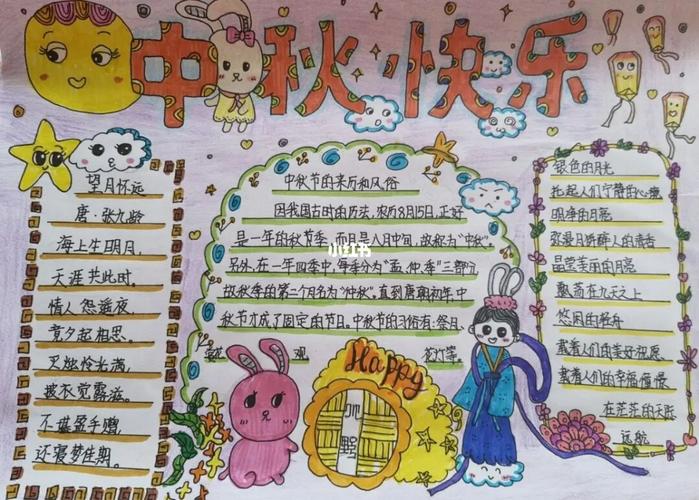 中秋快乐
望月怀远
唐·张九龄
海上生明月,
天涯共此时。
情人怨遥夜,
竟夕起相思。
灭烛怜光满,
披衣觉露滋。
不堪盈手赠,
还寝梦佳期。
中秋节的来历和风俗
因我国古时的历法,农历8月15日,正好
是一年的秋节季,而且是八月中间,故称为“中秋”。
另外,在一年四季中,每季分为“孟、仲、季”三部分
故秋季的第二个月名为“仲秋”。直到唐朝初年,中
秋节才成了固定的节日。中秋节的习俗有:祭月、
观
花灯等。
小红书
Happy
银色的月光
托起人们宁静的心境
明净的月亮
晶莹美丽的月亮
飘荡在九天之上
悠闲的轻舟
载着人们的美好祝愿
载着人们的幸福憧憬
在茫茫的天际
远航